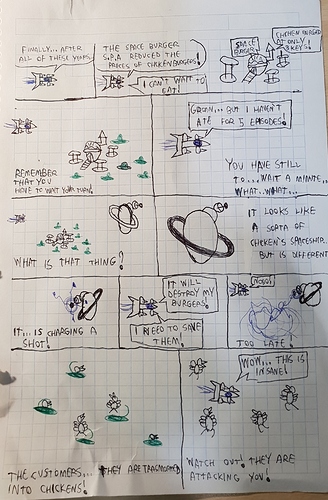 FINALLY... AFTER
ALL OF THESE YEARS
THE SPACE BURGER
S.P.A REDUCED THE
PRICES OF CHICKENBURGERS!
I CAN'T WAIT TO
EAT!
SPACE
BURGER
CHICKEN BURGER
AT ONLY
3 KEYS!
REMEMBER
THAT YOU
HAVE TO WAIT YOUR TURN!
GROAN... BUT I HAVEN'T
ATE FOR 5 EPISODES!
YOU HAVE STILL
TO... WAIT A MINUTE...
WHAT... WHAT...
WHAT IS THAT THING?
IT LOOKS LIKE
A SORTA OF
CHICKEN'S SPACESHIP...
BUT IS DIFFERENT
IT... IS CHARGING A
SHOT!
IT WILL
DESTROY MY
BURGERS!
I NEED TO SAVE
THEM!
NOOO!
TOO LATE!
THE CUSTOMERS... THEY ARE TRANSMORTED
INTO CHICKENS!
WOW... THIS IS
INSANE!
WATCH OUT! THEY ARE
ATTACKING YOU!